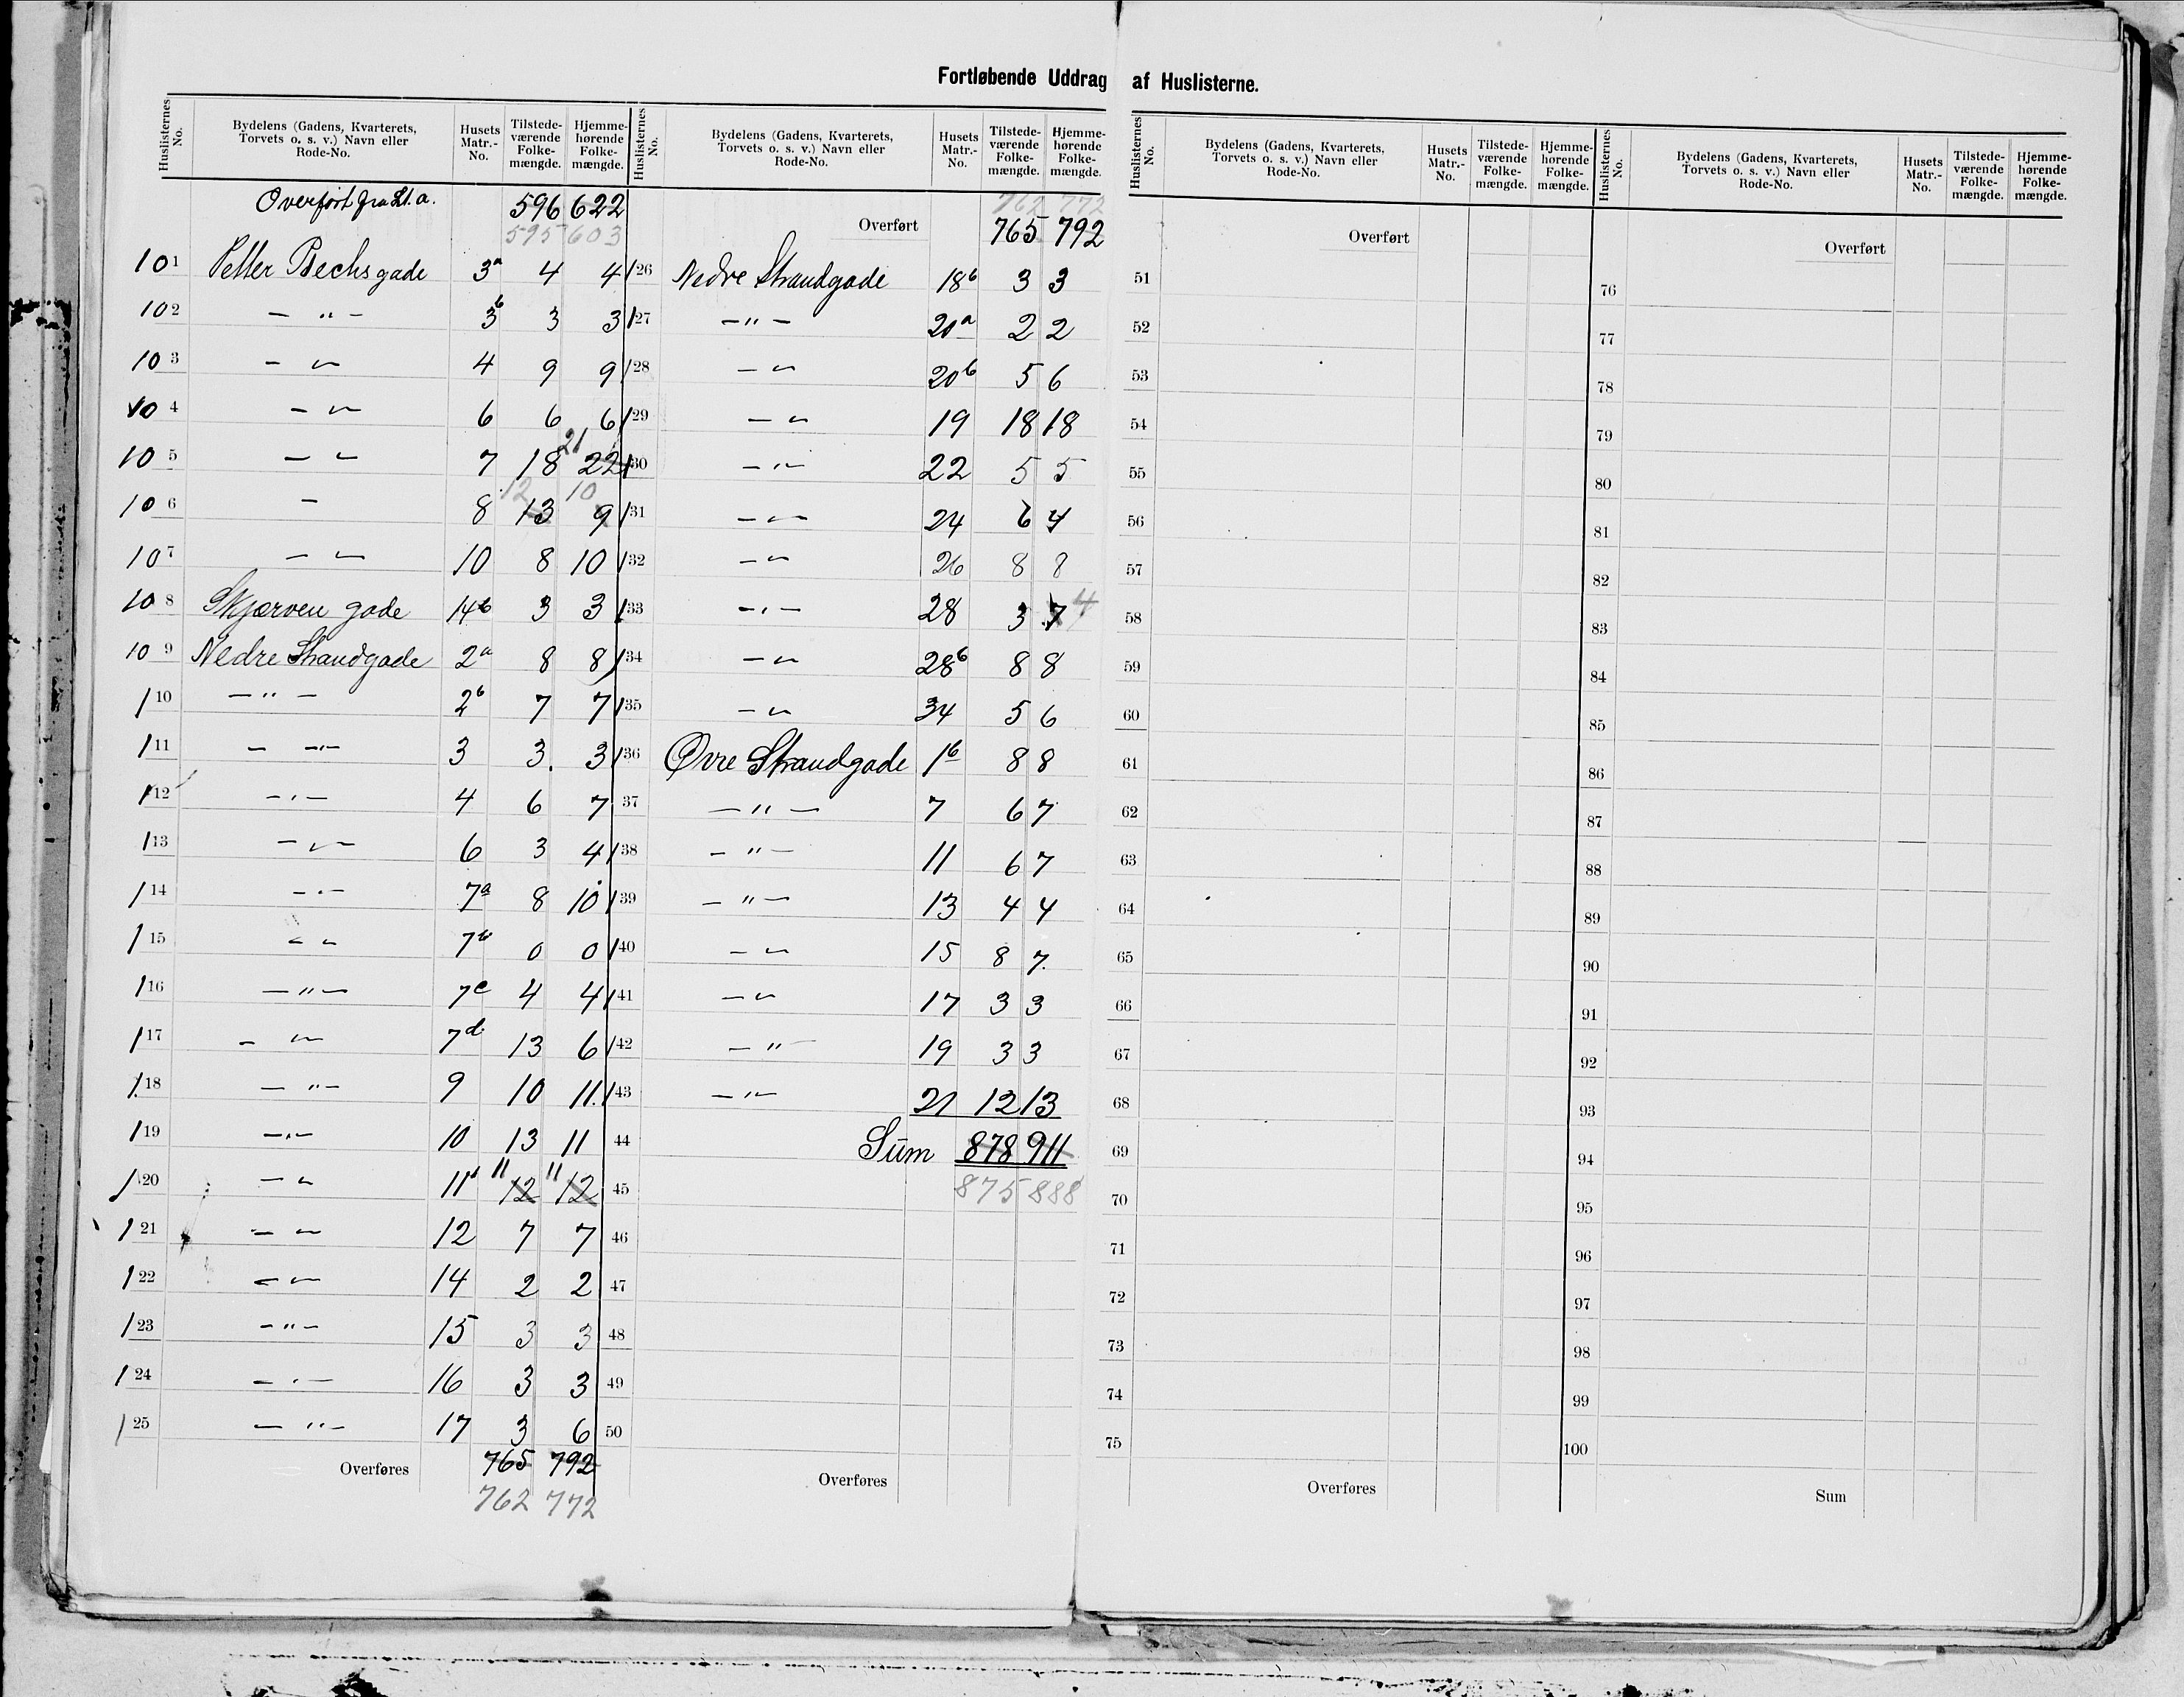 Fortløbende Uddrag af Huslisterne.
Huslisternes No. Bydelens (Gadens, Kvarterets, Torvets o. s. v.) Navn eller Rode-No. Husets Matr.-No. Tilstedeværende Folkemængde. Hjemmehørende Folkemængde.
Overført fra Lt. a. 596 622
595 603
101 Petter Bechsgade 3a 4 4
102 — " — 3b 3 3
103 — " — 4 9 9
104 — " — 6 6 6
105 — " — 7 18 21 22
106 — 8 12 13 10 9
107 — " — 10 8 10
108 Skjærven gade 14b 3 3
109 Nedre Strandgade 2a 8 8
110 — " — 2b 7 7
111 — " — 3 3. 3
112 — " — 4 6 7
113 — " — 6 3 4
114 — " — 7a 8 10
115 — " — 7b 0 0
116 — " — 7c 4 4
117 — " — 7d 13 6
118 — " — 9 10 11.
119 — " — 10 13 11
120 — " — 11 11 12 11 12
121 — " — 12 7 7
122 — " — 14 2 2
123 — " — 15 3 3
124 — " — 16 3 3
125 — " — 17 3 6
Overføres 765 792
762 772
Huslisternes No. Bydelens (Gadens, Kvarterets, Torvets o. s. v.) Navn eller Rode-No. Husets Matr.-No. Tilstedeværende Folkemængde. Hjemmehørende Folkemængde.
762 772
Overført 765 792
126 Nedre Strandgade 18b 3 3
127 — " — 20a 2 2
128 — " — 20b 5 6
129 — " — 19 18 18
130 — " — 22 5 5
131 — " — 24 6 4
132 — " — 26 8 8
133 — " — 28 3 7 4
134 — " — 28b 8 8
135 — " — 34 5 6
136 Øvre Strandgade 1b 8 8
37 — " — 7 6 7
138 — " — 11 6 7
139 — " — 13 4 4
140 — " — 15 8 7.
141 — " — 17 3 3
142 — " — 19 3 3
143 — " — 21 12 13
44 Sum 878 911
45 875 888
46
47
48
49
50
Overføres
Huslisternes No. Bydelens (Gadens, Kvarterets, Torvets o. s. v.) Navn eller Rode-No. Husets Matr.-No. Tilstedeværende Folkemængde. Hjemmehørende Folkemængde.
Overført
51
52
53
54
55
56
57
58
59
60
61
62
63
64
65
66
67
68
69
70
71
72
73
74
75
Overføres
Huslisternes No. Bydelens (Gadens, Kvarterets, Torvets o. s. v.) Navn eller Rode-No. Husets Matr.-No. Tilstedeværende Folkemængde. Hjemmehørende Folkemængde.
Overført
76
77
78
79
80
81
82
83
84
85
86
87
88
89
90
91
92
93
94
95
96
97
98
99
100
Sum